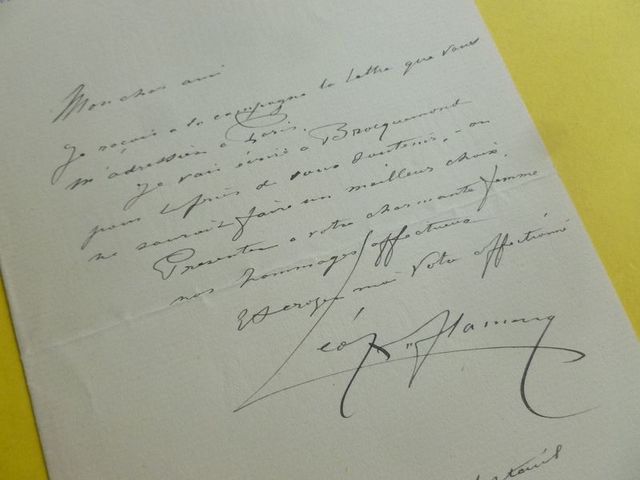 Mon cher ami
Je reçois à la campagne la lettre que vous
m'adressiez à Paris.
Je vais écrire à Brocquemont
pour le prier de vous soutenir, - on
ne saurait faire un meilleur choix.
Présentez à votre charmante femme
nos hommages affectueux
Et croyez moi Votre affectionné
Léop. Flameng